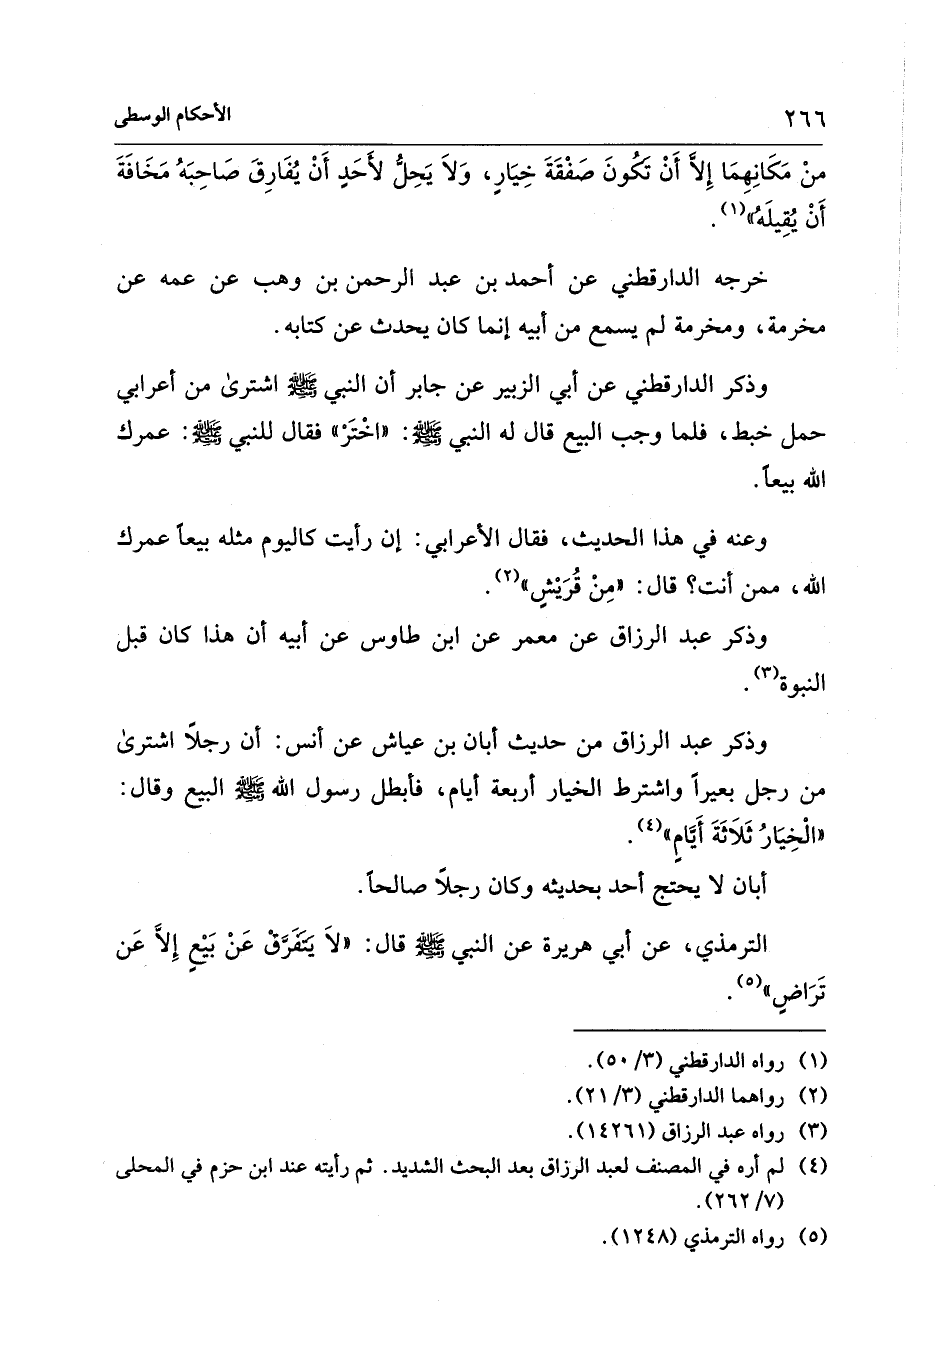 ٢٦٦ الأحكام الوسطى
منْ مَكَانِهِمَا إِلاَّ أَنْ تَكُونَ صَفْقَةَ خِيَارٍ، وَلاَ يَحِلُّ لأَحَدٍ أَنْ يُفَارِقَ صَاحِبَهُ مَخَافَةَ
أَنْ يُقِيلَهُ»(١).
خرجه الدارقطني عن أحمد بن عبد الرحمن بن وهب عن عمه عن
مخرمة، ومخرمة لم يسمع من أبيه إنما كان يحدث عن كتابه.
وذكر الدارقطني عن أبي الزبير عن جابر أن النبي ﷺ اشترىٰ من أعرابي
حمل خبط، فلما وجب البيع قال له النبي ﷺ: «اخْتَرْ» فقال للنبي ﷺ: عمرك
الله بيعاً.
وعنه في هذا الحديث، فقال الأعرابي: إن رأيت كاليوم مثله بيعاً عمرك
الله، ممن أنت؟ قال: «مِنْ قُرَيْشٍ»(٢).
وذكر عبد الرزاق عن معمر عن ابن طاوس عن أبيه أن هذا كان قبل
النبوة(٣).
وذكر عبد الرزاق من حديث أبان بن عياش عن أنس: أن رجلاً اشترىٰ
من رجل بعيراً واشترط الخيار أربعة أيام، فأبطل رسول الله ﷺ البيع وقال:
«الْخِيَارُ ثَلاَثَةَ أَيَّامٍ»(٤).
أبان لا يحتج أحد بحديثه وكان رجلاً صالحاً.
الترمذي، عن أبي هريرة عن النبي ﷺ قال: «لاَ يَتَفَرَّقْ عَنْ بَيْعٍ إِلاَّ عَن
تَرَاضٍ»(٥).
(١) رواه الدارقطني (٣/ ٥٠).
(٢) رواهما الدارقطني (٣/ ٢١).
(٣) رواه عبد الرزاق (١٤٢٦١).
(٤) لم أره في المصنف لعبد الرزاق بعد البحث الشديد. ثم رأيته عند ابن حزم في المحلى
(٧/ ٢٦٢).
(٥) رواه الترمذي (١٢٤٨).